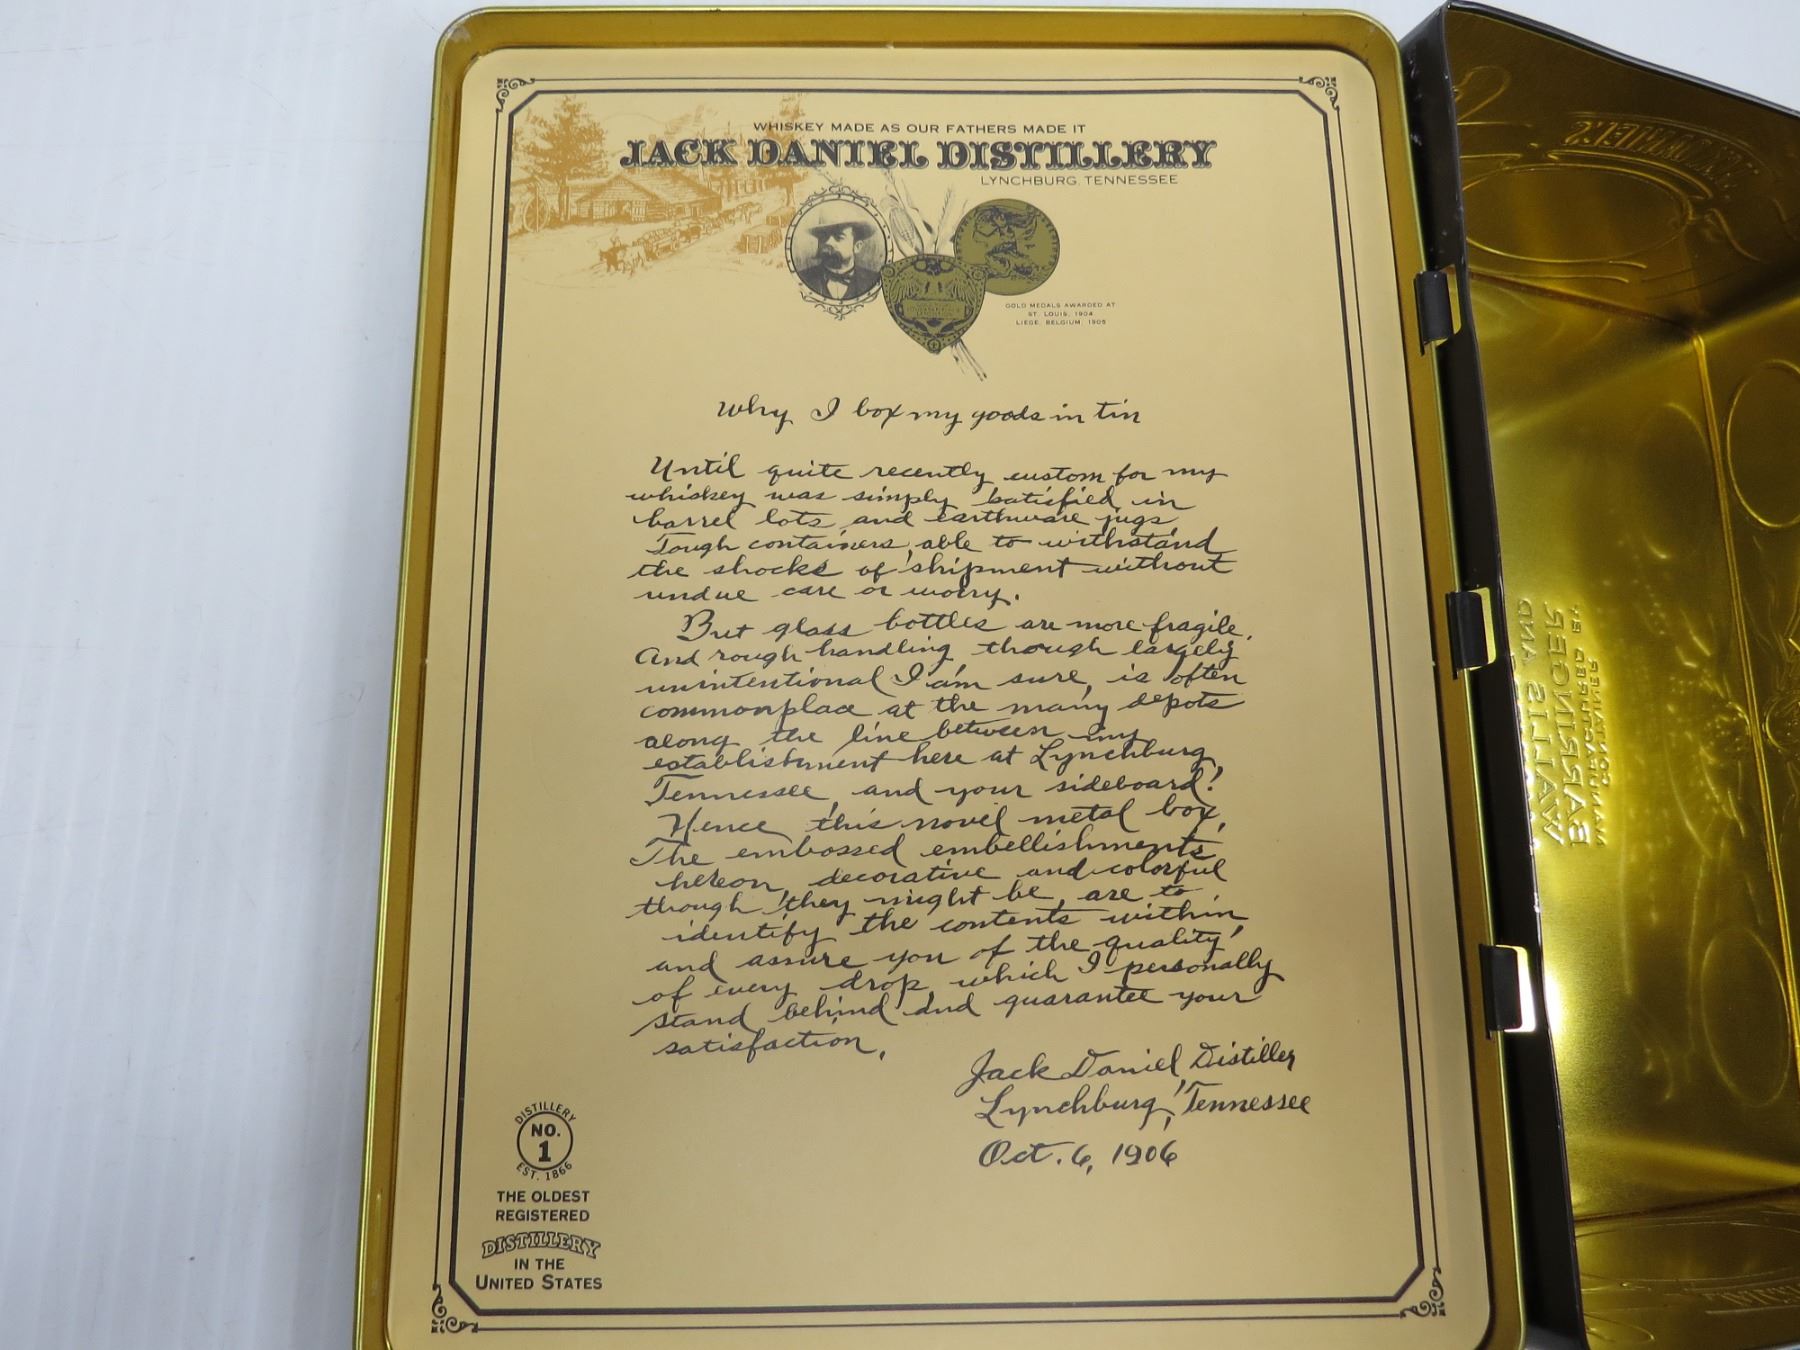 WHISKEY MADE AS OUR FATHERS MADE IT
JACK DANIEL DISTILLERY
LYNCHBURG, TENNESSEE
GOLD MEDALS AWARDED AT
ST. LOUIS, 1904
LIEGE, BELGIUM, 1905
Why I box my goods in tin
Until quite recently custom for my
whiskey was simply satisfied in
barrel lots and earthware jugs,
Tough containers, able to withstand
the shocks of shipment without
undue care or worry.
But glass bottles are more fragile.
And rough handling, though largely
unintentional I am sure, is often
commonplace at the many depots
along the line between my
establishment here at Lynchburg,
Tennessee, and your sideboard!
Hence this novel metal box.
The embossed embellishments
hereon, decorative and colorful
though they might be, are to
identify the contents within,
and assure you of the quality
of every drop, which I personally
stand behind and guarantee your
satisfaction.
Jack Daniel Distiller
Lynchburg, Tennessee
Oct. 6, 1906
DISTILLERY
NO.
1
EST. 1866
THE OLDEST
REGISTERED
DISTILLERY
IN THE
UNITED STATES